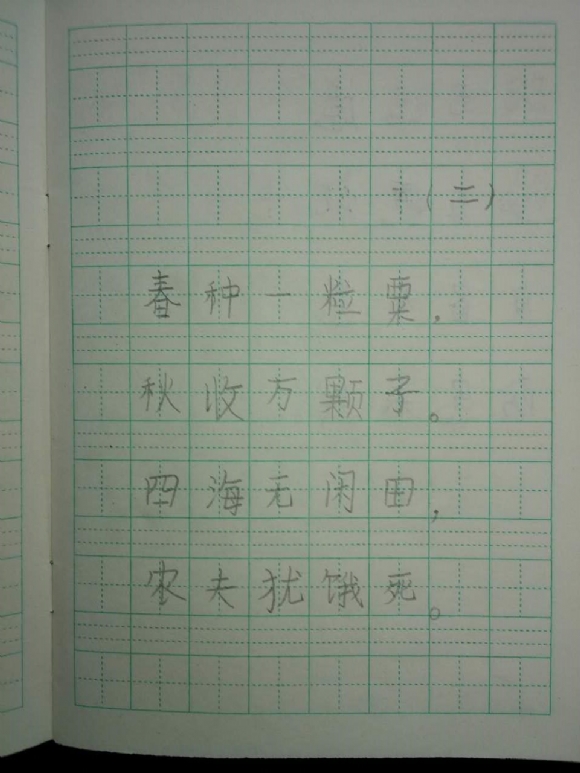 (二)
春种一粒粟，
秋收万颗子。
四海无闲田，
农夫犹饿死。